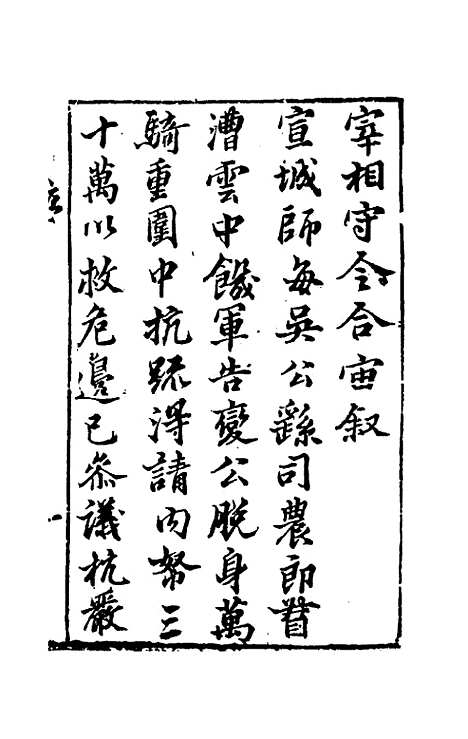 宰相守令合宙叙
宣城師每吳公繇司農郎督
漕雲中饑軍告變公脫身萬
騎重圍中抗疏得請內帑三
十萬以救危邊已叅議杭嚴